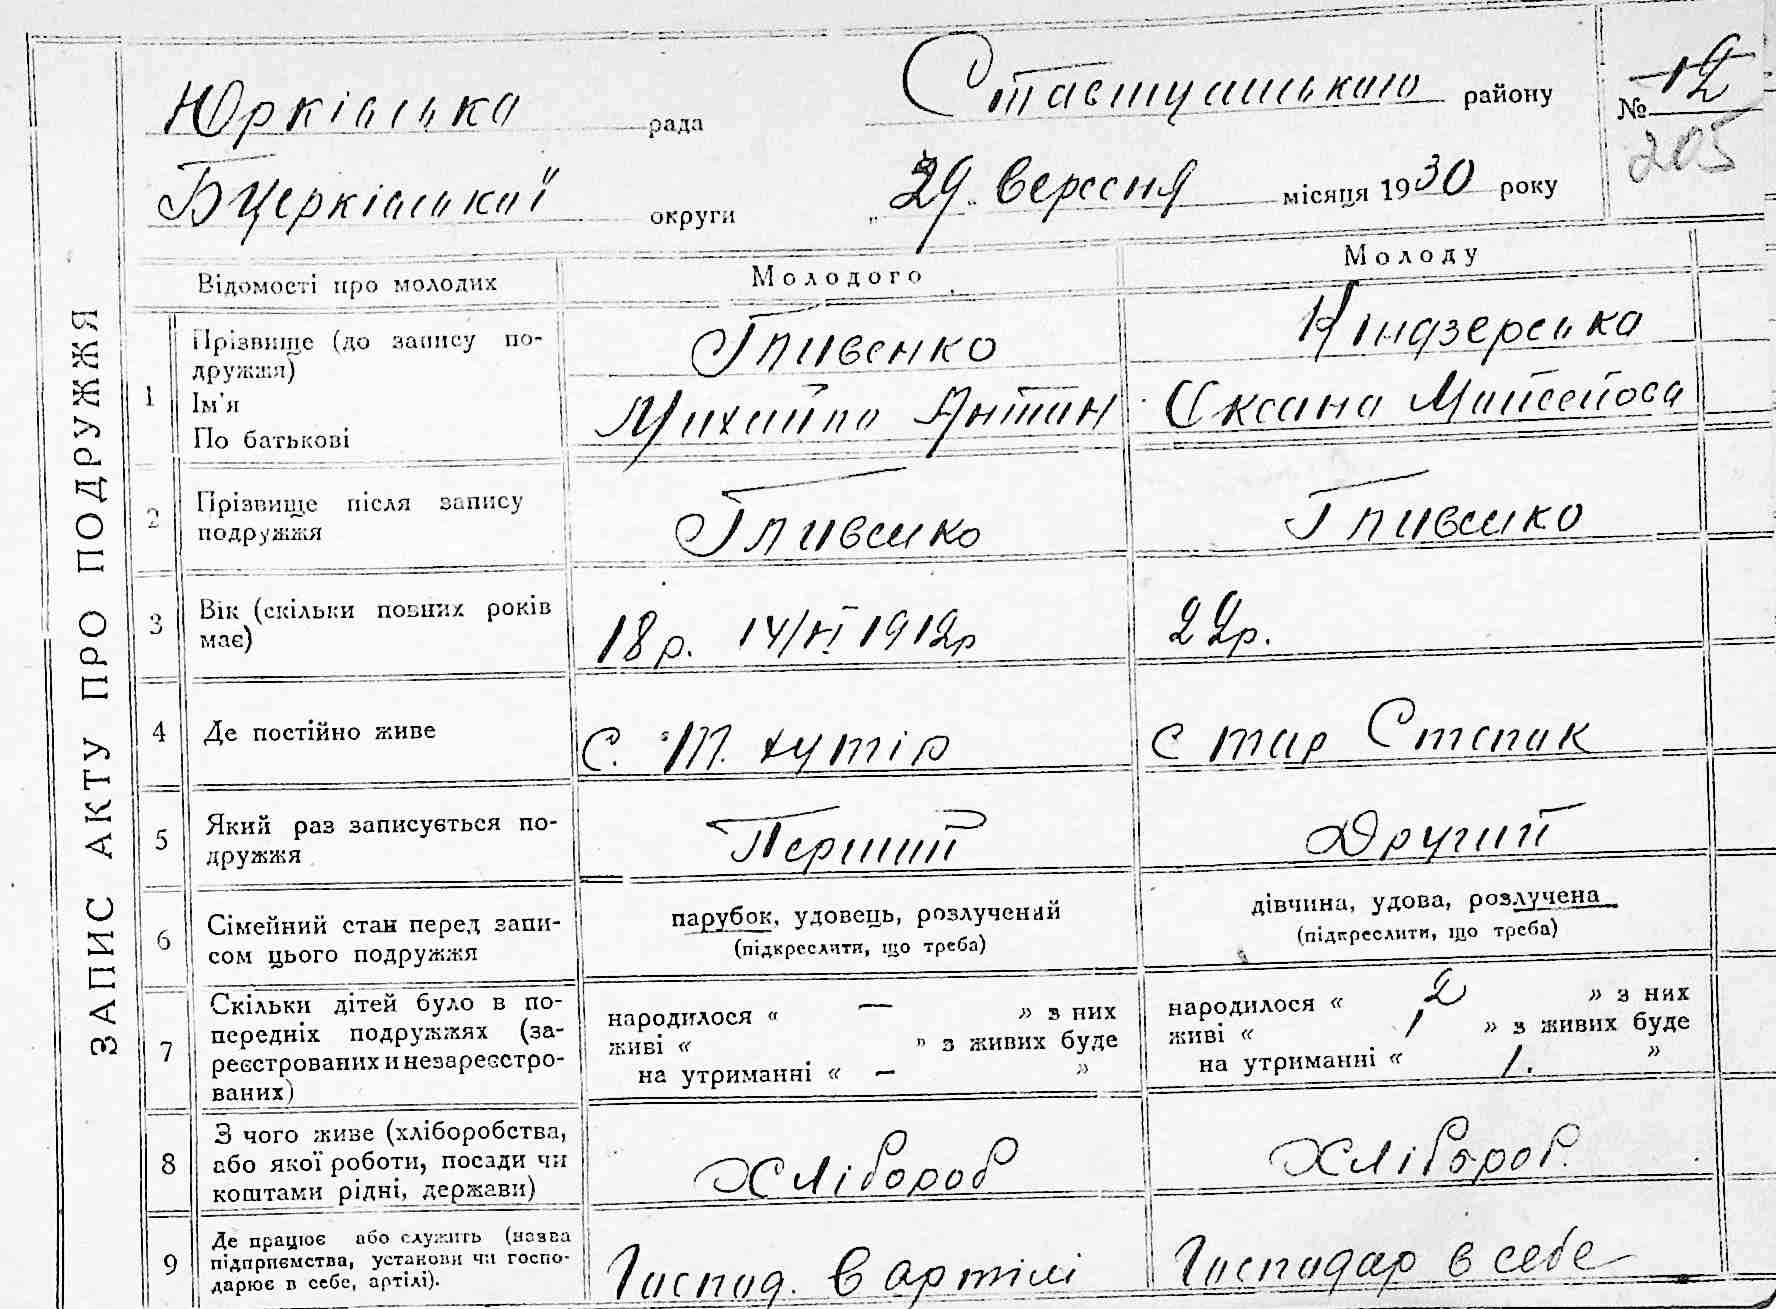 ЗАПИС АКТУ ПРО ПОДРУЖЖЯ
Юрківська рада
Ставищанського району
№ 12
205
Бцерківської округи
„ 29 „ вересня місяця 1930 року
Відомості про молодих
Молодого
Молоду
1
Прізвище (до запису по-
дружжя)
Ім'я
По батькові
Гливенко
Михайло Антон
Оксана Мойсейова
2
Прізвище після запису
подружжя
Гливенко
Гливенко
3
Вік (скільки повних років
має)
18р. 14/VI 1912р
22р.
4
Де постійно живе
С. хутір
С Степок
5
Який раз записується по-
дружжя
Перший
Другий
6
Сімейний стан перед запи-
сом цього подружжя
парубок, удовець, розлучений
(підкреслити, що треба)
дівчина, удова, розлучена
(підкреслити, що треба)
7
Скільки дітей було в по-
передніх подружжях (за-
реєстрованих и незареєстро-
ваних)
народилося « — » з них
живі « » з живих буде
на утриманні « — »
народилося « 2 » з них
живі « 1 » з живих буде
на утриманні « 1. »
8
З чого живе (хліборобства,
або якої роботи, посади чи
коштами рідні, держави)
Хлібороб
Хлібороб.
9
Де працює або служить (назва
підприємства, установи чи госпо-
дарює в себе, артілі).
Господ. в артілі
Господар в себе